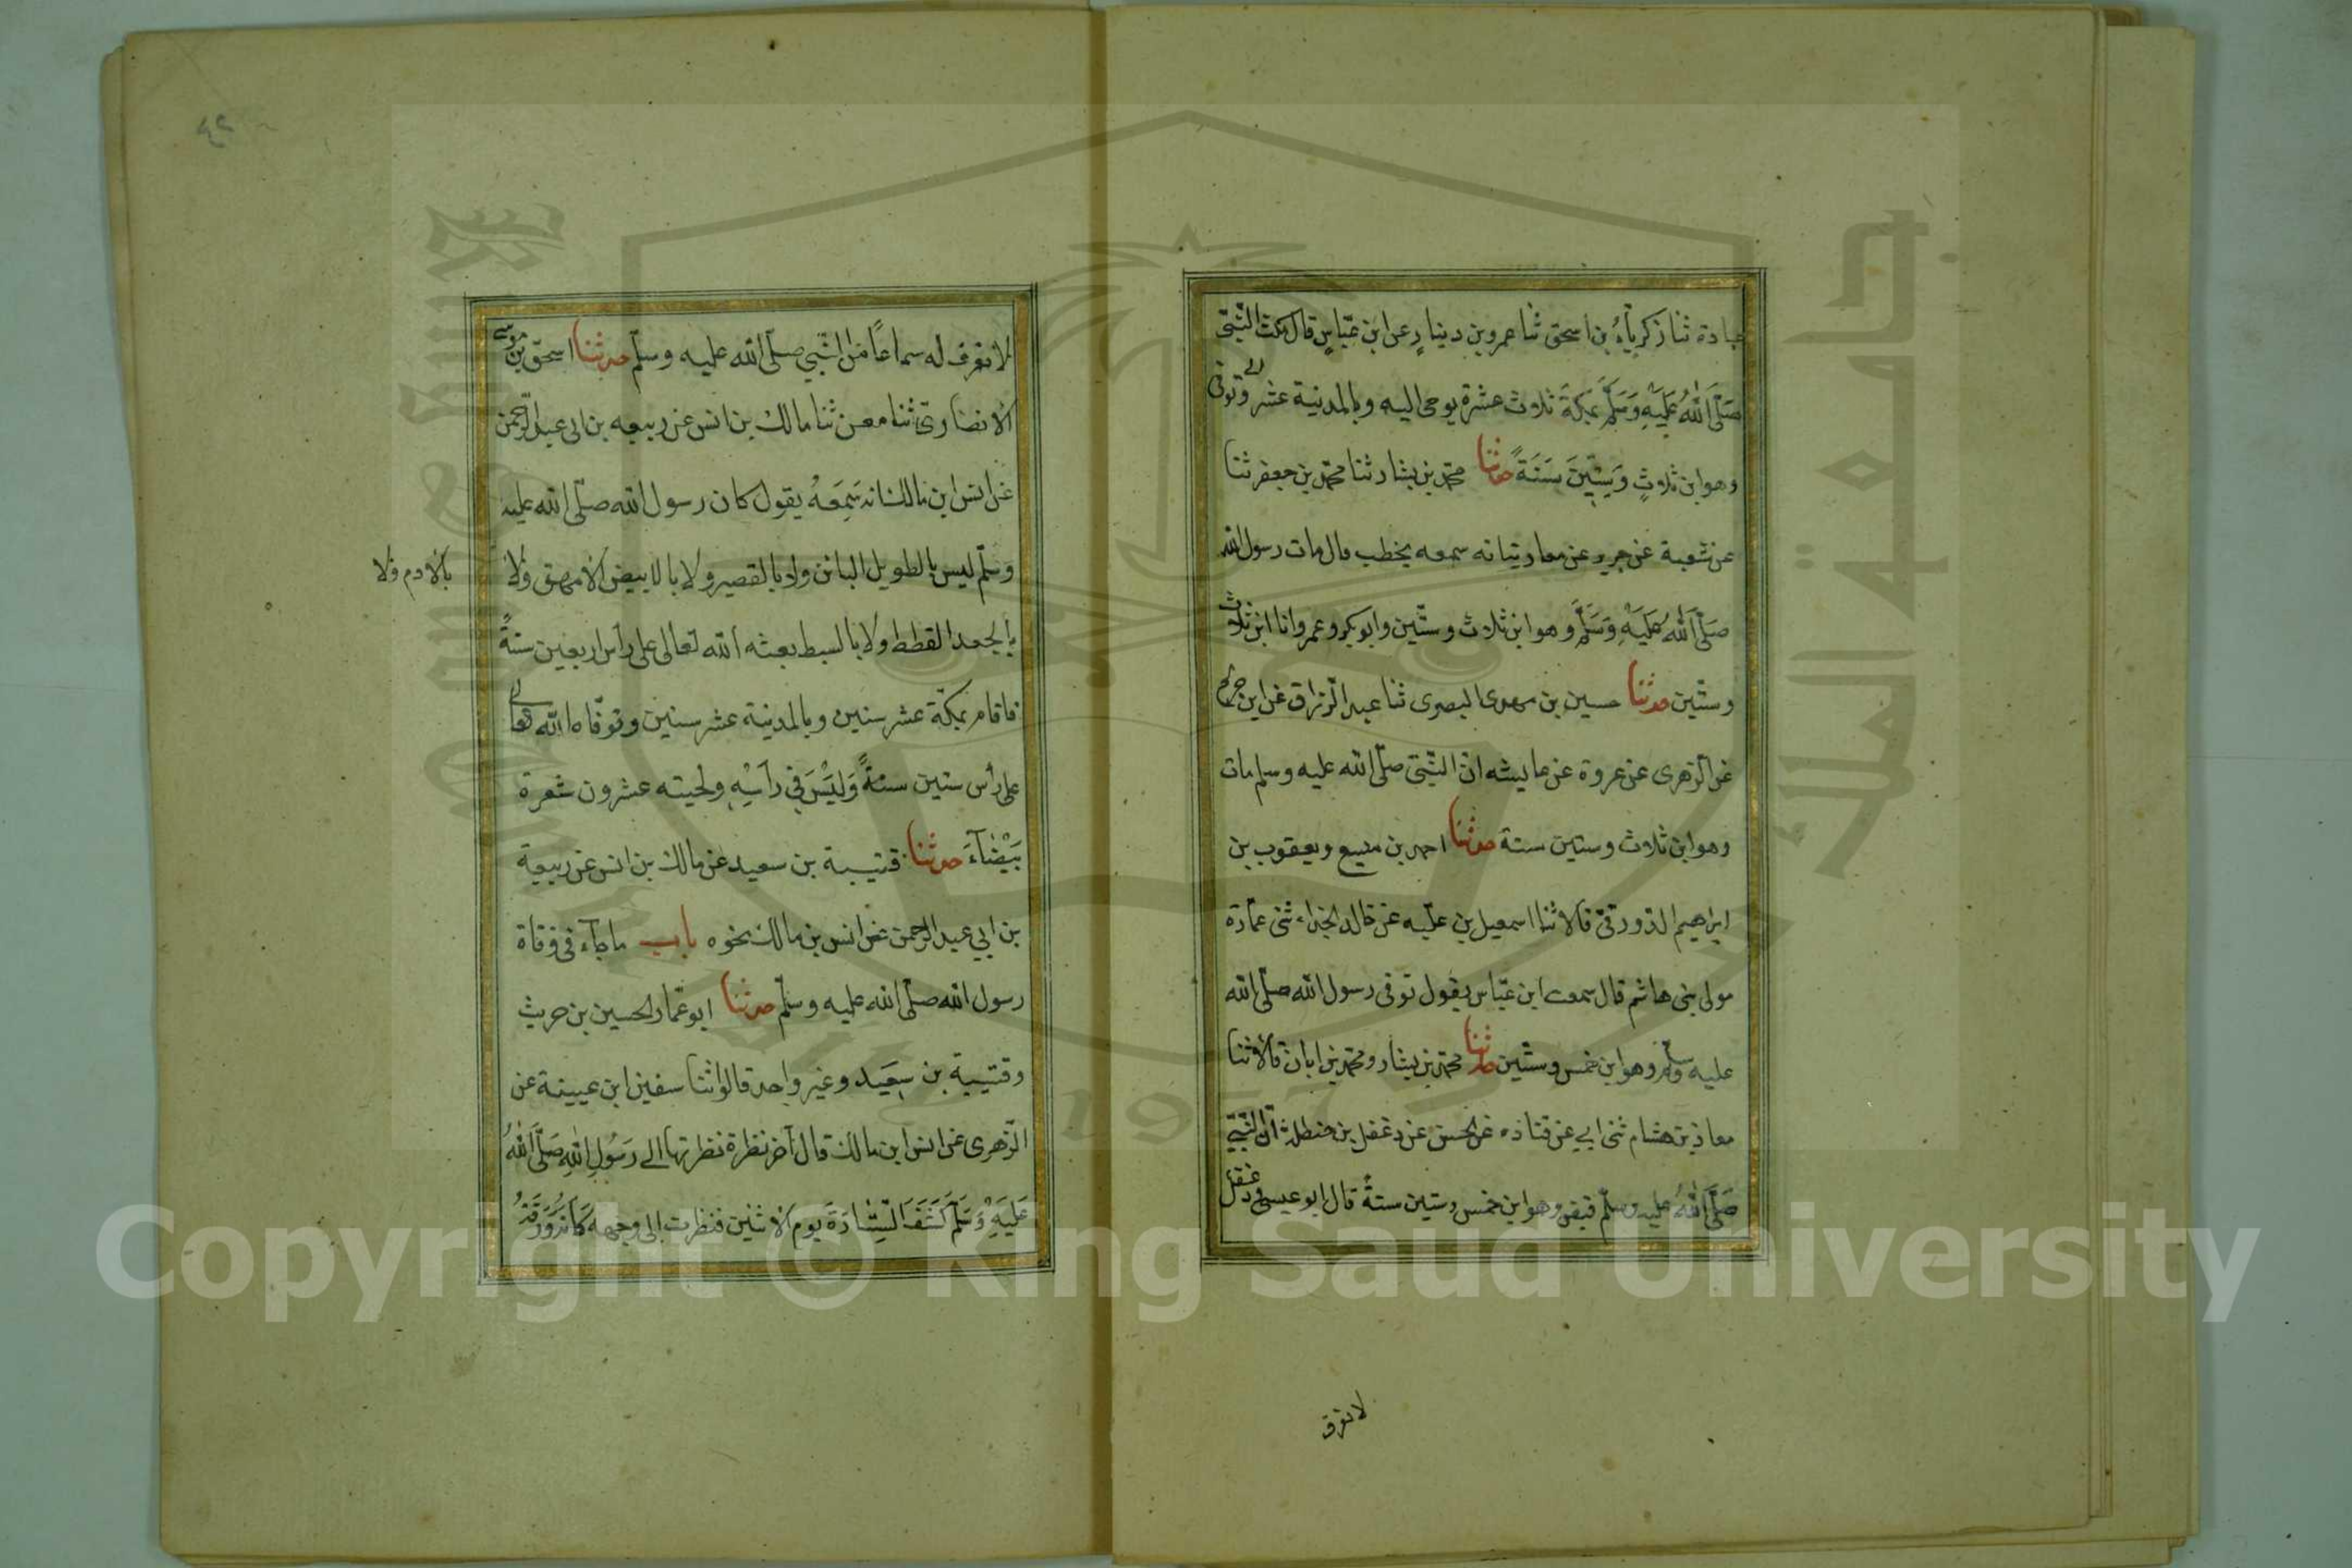 عبادة ثنا زكرياء بن اسحق ثنا عمرو بن دينار عن ابن عباس قال مكث النبي
صلى الله عليه وسلم بمكة ثلاث عشرة يوحى اليه وبالمدينة عشر وتوفى
وهو ابن ثلاث وستين سنة حدثنا محمد بن بشار ثنا محمد بن جعفر ثنا
عن شعبة عن جرير عن معاوية انه سمعه يخطب قال مات رسول الله
صلى الله عليه وسلم وهو ابن ثلاث وستين وابو بكر وعمر وانا ابن ثلاث
وستين حدثنا حسين بن مهدى البصرى ثنا عبد الرزاق عن ابن جريج
عن الزهرى عن عروة عن عايشه ان النبي صلى الله عليه وسلم مات
وهو ابن ثلاث وستين سنة حدثنا احمد بن منيع ويعقوب بن
ابراهيم الدورقى قالا ثنا اسمعيل بن علية عن خالد الحذاء ثنى عمارة
مولى بنى هاشم قال سمعت ابن عباس يقول توفى رسول الله صلى الله
عليه وسلم وهو ابن خمس وستين حدثنا محمد بن بشار ومحمد بن ابان قالا ثنا
معاذ بن هشام ثنى ابي عن قتادة عن الحسن عن دغفل بن حنظلة ان النبي
صلى الله عليه وسلم قبض وهو ابن خمس وستين سنة قال ابو عيسى ودغفل
لا نعرف
لا نعرف له سماعا من النبي صلى الله عليه وسلم حدثنا اسحق بن موسى
الانصارى ثنا معن ثنا مالك بن انس عن ربيعه بن ابى عبد الرحمن
عن انس ابن مالك انه سمعه يقول كان رسول الله صلى الله عليه
وسلم ليس بالطويل البائن ولا بالقصير ولا بالابيض الامهق ولا
بالادم ولا
بالجعد القطط ولا بالسبط بعثه الله تعالى على راس اربعين سنة
فاقام بمكة عشر سنين وبالمدينة عشر سنين وتوفاه الله تعالى
على رأس ستين سنة وليس في رأسه ولحيته عشرون شعرة
بيضآء حدثنا قتيبة بن سعيد عن مالك بن انس عن ربيعة
بن ابي عبد الرحمن عن انس بن مالك نحوه باب ماجآء في وفاة
رسول الله صلى الله عليه وسلم حدثنا ابو عمار الحسين بن حريث
وقتيبة بن سعيد وغير واحد قالوا ثنا سفين ابن عيينة عن
الزهرى عن انس ابن مالك قال آخر نظرة نظرتها الى رسول الله صلى الله
عليه وسلم كشف الستارة يوم الاثنين فنظرت الى وجهه كانه ورقة
Copyright © King Saud University